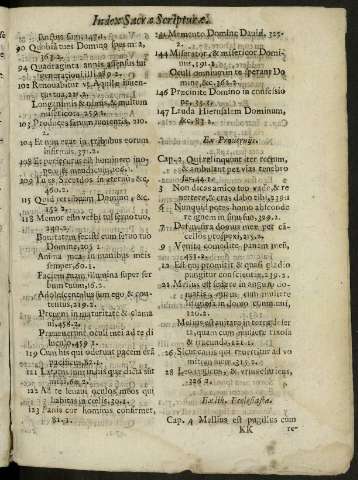 Index Sacræ Scripturæ.
sanctus sum 147.1.
90 Quobis tues Domino ipsum: 2,
363.2.
94 Quadraginta annis offensus fui
generationi illi 489.2.
102 Renovabitur vt Aquilæ iuven-
tus tua, 221.2.
Longanimis & nimis, & multum
misericors 259.2.
103 Producens fænum iumentis, 210.
2.
104 Et eum reges in tribubus eorum
108 Et persecutus est hominem ino-
pem & mendicum,
109 Tu es Sacerdos in æternum &c,
460.2.
115 Quid retribuam Domino, &c.
152.2.
118 Memor esto verbi tui seruo tuo,
240.2.
Bonitatem fecisti cum seruo tuo
Domine, 205.
Anima mea in manibus meis
semper, 60.1.
Faciem tuam illumina super ser
bum tuum, 16.2.
Adolescentulus sum ego & con-
temtus, 219.2.
Præueni in maturitate & clama
ui, 458.2.
Præuenerunt oculi mei ad te di
luculo, 459.1.
119 Cum his qui oderunt pacem erã
pacificus, 87.1.
121 Lætatus sum in his quæ dicta sũt
mihi, 60.2.
122 Ad te leuaui oculos meos qui
habitas in cœlis, 30.2.
123 Panis cor hominis confirmet,
81.2.
131 Memento Domine Dauid, 325.
2.
144 Miserator, & misericors Domi-
nus, 191.2.
Oculi omnium in te sperant Do
mine, &c, 362.2.
146 Præcinite Domino in confessio
ne, 35.1.
147 Lauda Hierusalem Dominum,
&c, 83.2.
Ex Prouerbijs.
Cap. 2 Qui relinquunt iter rectum,
& ambulant per vias tenebro
sas, 44.1.
3 Non dicas amico tuo vade, & re
uertere, & cras dabo tibi, 319.2.
6 Nunquid potest homo abscondere
ignem in sinu suo, 399.2.
7 De fenestra domus meæ per cã-
cellos prospexi, 215.2.
9 Venite comedite panem meũ,
451.2.
12 Est qui promittit & quasi gladio
pungitur conscientiæ, 229.2.
21 Melius est sedere in angulo do-
matis quam cum muliere
litigiosa in domo communi,
120.2.
Melius est habitare in terra deser
ta, quam cum muliere rixosa
& iracunda, 121.1.
26 Sicut canis qui reuertitur ad vo
mitum suum, 315.2.
28 Leo rugiens, & vrsus esuriens,
226.2.
Ex lib. Ecclesiastæ.
Cap. 4 Melius est pugillus cum
KK re-